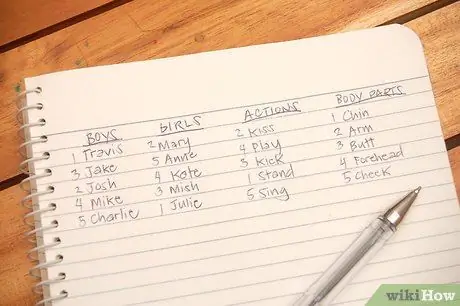 BOYS GIRLS ACTIONS BODY PARTS
1 Travis 2 Mary 2 Kiss 1 Chin
3 Jake 5 Anne 4 Play 2 Arm
2 Josh 4 Kate 3 Kick 3 Butt
4 Mike 3 Mish 1 Stand 4 Forehead
5 Charlie 1 Julie 5 Sing 5 Cheek
wikiHow